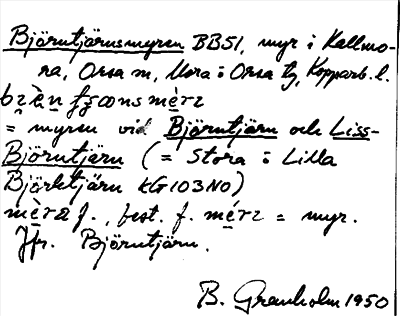 Björntjärnsmyren BB51, myr i Kallmo-
ra, Orsa sn, Mora i Orsa tg, Kopparb. l.
= myren vid Björntjärn och Liss-
Björntjärn (= Stora i Lilla
Björktjärn KG103NO)
f., best. f. = myr.
Jfr. Björntjärn.
B. Granholm 1950